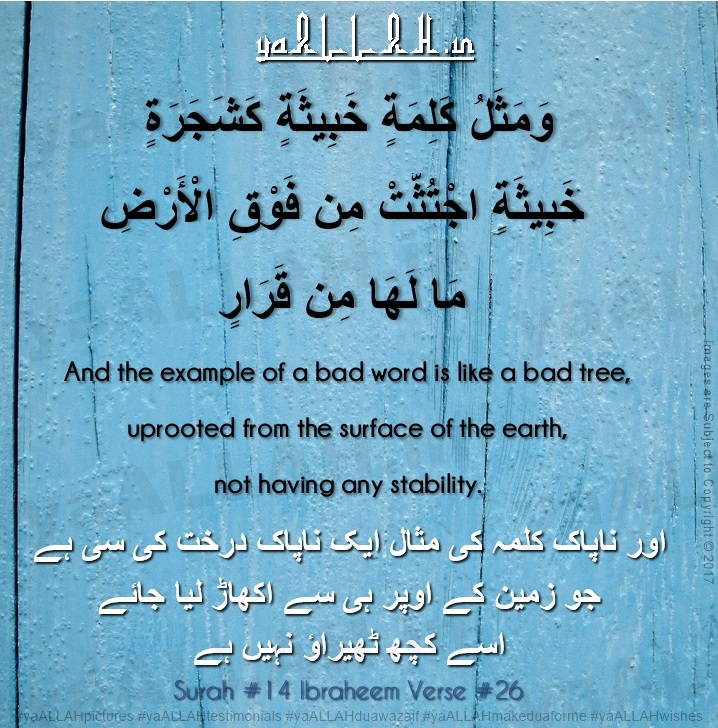 yaALLAH.in
وَمَثَلُ كَلِمَةٍ خَبِيثَةٍ كَشَجَرَةٍ
خَبِيثَةٍ اجْتُثَّتْ مِن فَوْقِ الْأَرْضِ
مَا لَهَا مِن قَرَارٍ
And the example of a bad word is like a bad tree,
uprooted from the surface of the earth,
not having any stability.
اور ناپاک کلمہ کی مثال ایک ناپاک درخت کی سی ہے
جو زمین کے اوپر ہی سے اکھاڑ لیا جائے
اسے کچھ ٹھیراؤ نہیں ہے
Surah #14 Ibraheem Verse #26
#yaALLAHpictures #yaALLAHtestimonials #yaALLAHduawazaif #yaALLAHmakeduaforme #yaALLAHwishes
Images are Subject to Copyright © 2017